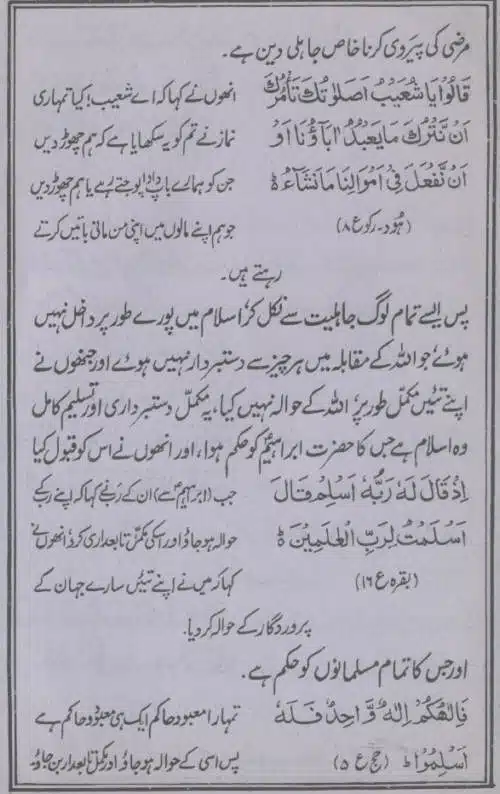 مرضی کی پیروی کرنا خاص جاہلی دین ہے۔
قَالُوْا یَا شُعَیْبُ اَصَلٰوتُكَ تَأْمُرُكَ انھوں نے کہا کہ اے شعیب! کیا تمہاری
اَنْ نَّتْرُكَ مَا یَعْبُدُ اٰبَآؤُنَا اَوْ نماز نے تم کو یہ سکھایا ہے کہ ہم چھوڑ دیں
اَنْ نَّفْعَلَ فِیْ اَمْوَالِنَا مَا نَشَآءُ ؕ جن کو ہمارے باپ دادا پوجتے رہے یا ہم چھوڑ دیں
(ہُود۔ رکوع ۸) جو ہم اپنے مالوں میں اپنی من مانی باتیں کرتے
رہتے ہیں۔
پس ایسے تمام لوگ جاہلیت سے نکل کر اسلام میں پورے طور پر داخل نہیں
ہوئے جو اللہ کے مقابلہ میں ہر چیز سے دستبردار نہیں ہوئے اور جنھوں نے
اپنے تئیں مکمل طور پر اللہ کے حوالہ نہیں کیا، یہ مکمل دستبرداری اور تسلیم کامل
وہ اسلام ہے جس کا حضرت ابراہیمؑ کو حکم ہوا، اور انھوں نے اس کو قبول کیا
اِذْ قَالَ لَهٗ رَبُّهٗ اَسْلِمْ قَالَ جب (ابراہیمؑ سے) ان کے رب نے کہا کہ اپنے رب کے
اَسْلَمْتُ لِرَبِّ الْعٰلَمِیْنَ ؕ حوالہ ہو جاؤ اور اسکی مکمل تابعداری کرو انھوں نے
(بقرہ ع ۱۶) کہا کہ میں نے اپنے تئیں سارے جہان کے
پروردگار کے حوالہ کر دیا۔
اور جس کا تمام مسلمانوں کو حکم ہے۔
فَاِلٰهُكُمْ اِلٰهٌ وَّاحِدٌ فَلَهٗ تمہارا معبود حاکم ایک ہی معبود حاکم ہے
اَسْلِمُوْا ؕ (حج ع ۵) پس اسی کے حوالہ ہو جاؤ اور مکمل تابعدار بن جاؤ۔